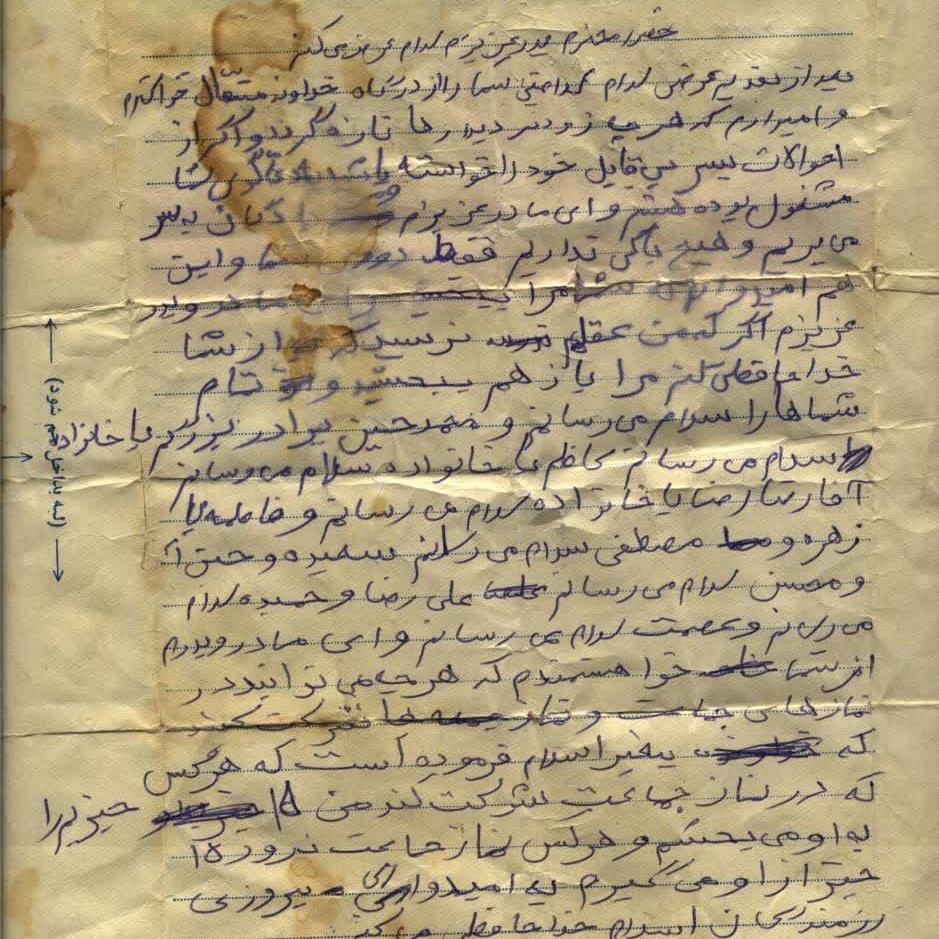 حضور محترم پدر عزیزم سلام عرض می کنم
بعد از تقدیم عرض سلام سلامتی شما را از درگاه خداوند متعال خواهانم
و امیدوارم که هر چه زودتر دیدارها تازه گردد و اگر از
احوالات پسر بی قابل خود را خواسته باشید
مشغول بوده هستم و ای مادر عزیزم به سر
می بریم و هیچ باکی نداریم فقط دوری شما و این
هم امیدوارم مرا پدر و مادر
عزیزم اگر نرسید که از شما
خدا حافظی کنم مرا باز هم ببخشید و تمام
شماها را سلام می رسانم و محمد حسین برادر بزرگم با خانواده
سلام می رسانم کاظم با خانواده سلام می رسانم
آقا رضا با خانواده سلام می رسانم و فاطمه با
زهره و مصطفی سلام می رسانم سعیده و حسن آ
و محسن سلام می رسانم علی رضا و حمیده سلام
می رسانم و عصمت سلام می رسانم و ای مادر و پدرم
از شما خواهشمندم که هر چه می توانید در
نمازهای جماعت و نماز جمعه ها شرکت کنید
که پیغمبر اسلام فرموده است که هر کس
که در نماز جماعت شرکت کند من ۱۵ چیز را
به او می بخشم و هر کس نماز جماعت نرود ۱۵
چیز از او می گیرم به امیدواری پیروزی
رزمندگان اسلام خدا حافظی می کنم
(لبه به داخل خم شود)